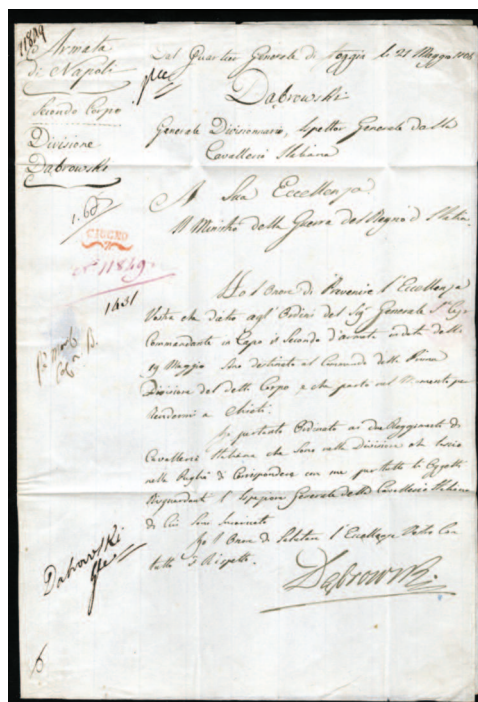 11849
Armata
di Napoli
Secondo Corpo
Divisione
Dąbrowski
Dal Quartier Generale di Foggia li 21 Maggio
Dąbrowski
Generale Divisionario, Ispettor Generale della
Cavalleria Italiana
A Sua Eccellenza
Il Ministro della Guerra del Regno d'Italia
GIUGNO
N° 11849
1431
Ho l'Onore di Prevenire l'Eccellenza
Vostra che dietro agl'Ordini del Sig. Generale
Commandante in Capo il Secondo d'armata in data delli
19 Maggio Sono destinato al Comando della Prima
Divisione del detto Corpo, e che parto sul Momento per
Rendermi a Chieti.
Ho pertanto Ordinato ai due Reggimenti di
Cavalleria Italiana che Sono nella Divisione che lascio
nella Puglia di Corrispondere con me per tutti li Oggetti
Risguardanti l'Ispezione Generale della Cavalleria Italiana
di Cui Sono Incaricato
Ho l'Onore di Salutare l'Eccellenza Vostra Con
tutto il Rispetto.
Dąbrowski
Dabrowski
6